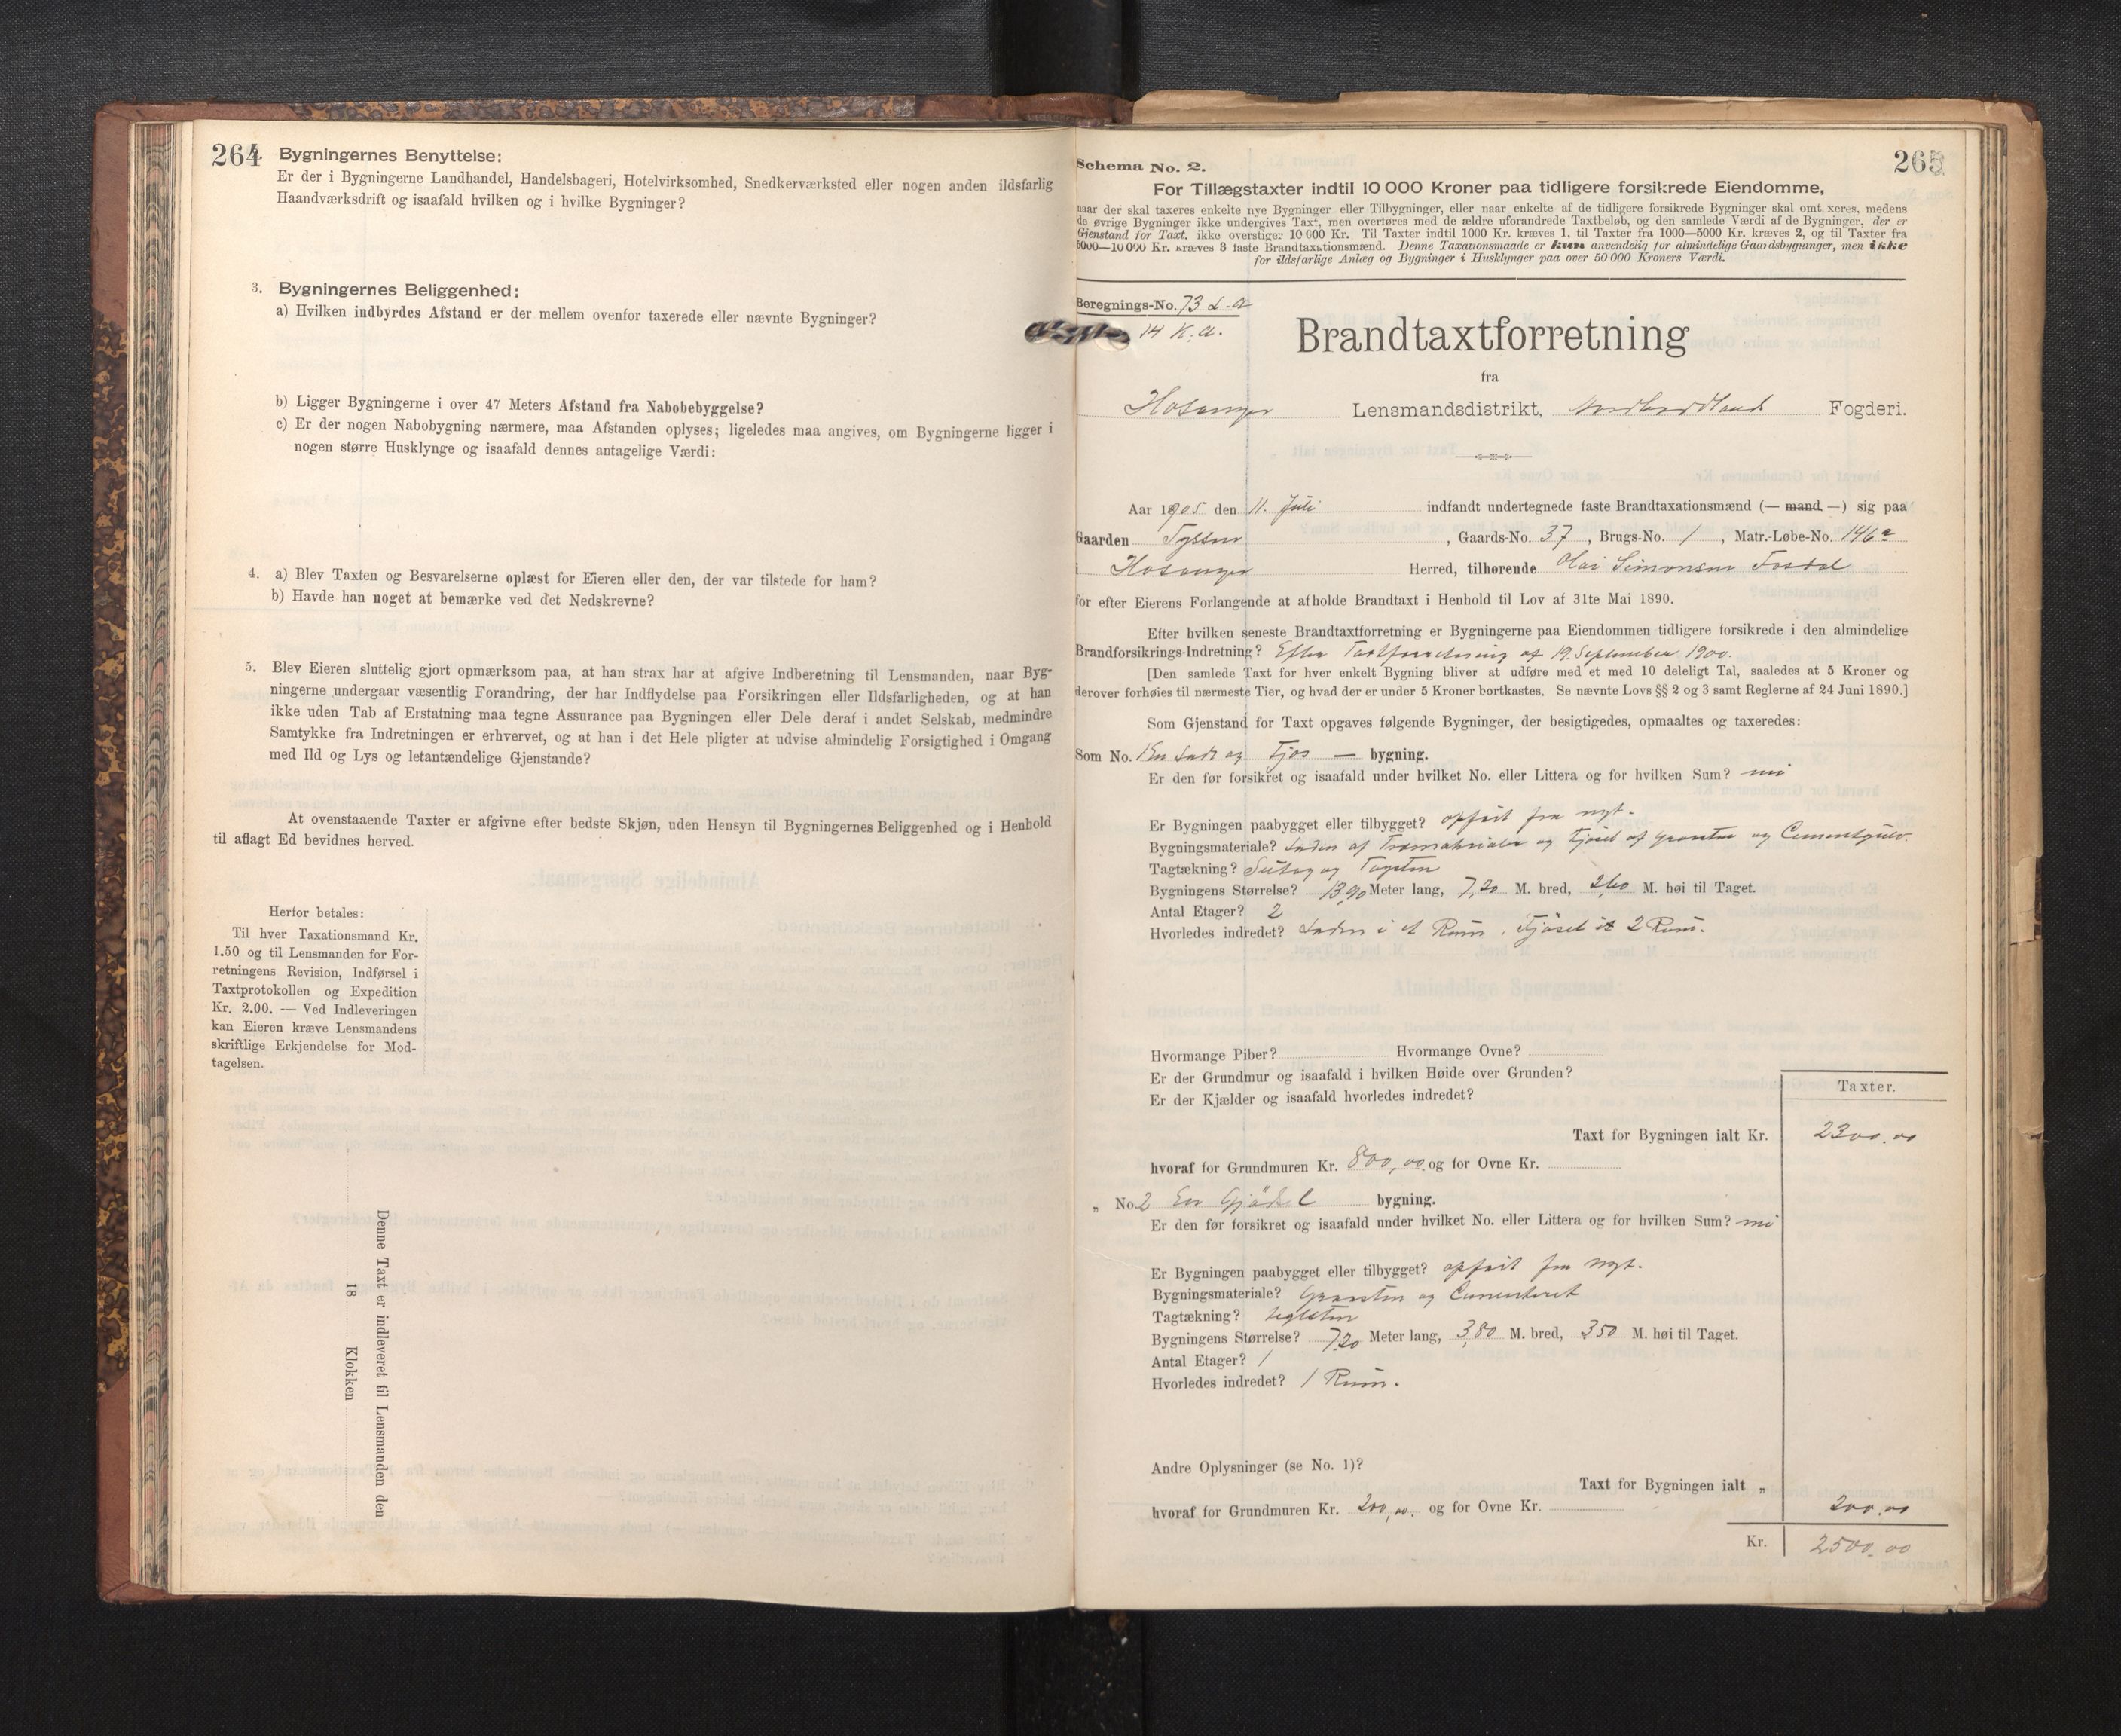 264
Bygningernes Benyttelse:
Er der i Bygningerne Landhandel, Handelsbageri, Hotelvirksomhed, Snedkerværksted eller nogen anden ildsfarlig
Haandværksdrift og isaafald hvilken og i hvilke Bygninger?
3. Bygningernes Beliggenhed:
a) Hvilken indbyrdes Afstand er der mellem ovenfor taxerede eller nævnte Bygninger?
b) Ligger Bygningerne i over 47 Meters Afstand fra Nabobebyggelse?
c) Er der nogen Nabobygning nærmere, maa Afstanden oplyses; ligeledes maa angives, om Bygningerne ligger i
nogen større Husklynge og isaafald dennes antagelige Værdi:
4. a) Blev Taxten og Besvarelserne oplæst for Eieren eller den, der var tilstede for ham?
b) Havde han noget at bemærke ved det Nedskrevne?
5. Blev Eieren sluttelig gjort opmærksom paa, at han strax har at afgive Indberetning til Lensmanden, naar Byg-
ningerne undergaar væsentlig Forandring, der har Indflydelse paa Forsikringen eller Ildsfarligheden, og at han
ikke uden Tab af Erstatning maa tegne Assurance paa Bygningen eller Dele deraf i andet Selskab, medmindre
Samtykke fra Indretningen er erhvervet, og at han i det Hele pligter at udvise almindelig Forsigtighed i Omgang
med Ild og Lys og letantændelige Gjenstande?
At ovenstaaende Taxter er afgivne efter bedste Skjøn, uden Hensyn til Bygningernes Beliggenhed og i Henhold
til aflagt Ed bevidnes herved.
Herfor betales:
Til hver Taxationsmand Kr.
1.50 og til Lensmanden for For-
retningens Revision, Indførsel i
Taxtprotokollen og Expedition
Kr. 2.00. — Ved Indleveringen
kan Eieren kræve Lensmandens
skriftlige Erkjendelse for Mod-
tagelsen.
Denne Taxt er indleveret til Lensmanden den
18 Klokken
265
Schema No. 2.
For Tillægstaxter indtil 10 000 Kroner paa tidligere forsikrede Eiendomme,
naar der skal taxeres enkelte nye Bygninger eller Tilbygninger, eller naar enkelte af de tidligere forsikrede Bygninger skal omtaxeres, medens
de øvrige Bygninger ikke undergives Taxt, men overføres med de ældre uforandrede Taxtbeløb, og den samlede Værdi af de Bygninger, der er
Gjenstand for Taxt, ikke overstiger 10 000 Kr. Til Taxter indtil 1000 Kr. kræves 1, til Taxter fra 1000—5000 Kr. kræves 2, og til Taxter fra
5000—10 000 Kr. kræves 3 faste Brandtaxationsmænd. Denne Taxationsmaade er kun anvendelig for almindelige Gaardsbygninger, men ikke
for ildsfarlige Anlæg og Bygninger i Husklynger paa over 50 000 Kroners Værdi.
Beregnings-No. 73 L.a
14 K.a.
Brandtaxtforretning
fra
Hosanger Lensmandsdistrikt, Nordhordland Fogderi.
Aar 1905 den 11. Juli indfandt undertegnede faste Brandtaxationsmænd (— mand —) sig paa
Gaarden Tyssen, Gaards-No. 37, Brugs-No. 1, Matr.-Løbe-No. 146a
i Hosanger Herred, tilhørende Simonsen
for efter Eierens Forlangende at afholde Brandtaxt i Henhold til Lov af 31te Mai 1890.
Efter hvilken seneste Brandtaxtforretning er Bygningerne paa Eiendommen tidligere forsikrede i den almindelige
Brandforsikrings-Indretning? Efter Taxtforretning af 19. September 1900.
[Den samlede Taxt for hver enkelt Bygning bliver at udføre med et med 10 deleligt Tal, saaledes at 5 Kroner og
derover forhøies til nærmeste Tier, og hvad der er under 5 Kroner bortkastes. Se nævnte Lovs §§ 2 og 3 samt Reglerne af 24 Juni 1890.]
Som Gjenstand for Taxt opgaves følgende Bygninger, der besigtigedes, opmaaltes og taxeredes:
Som No. 1 En Lade og Fjøs — bygning.
Er den før forsikret og isaafald under hvilket No. eller Littera og for hvilken Sum? nei
Er Bygningen paabygget eller tilbygget? opført fra nyt.
Bygningsmateriale? Laden af Træmaterialer og Fjøset af Graasten og Cementgulv.
Tagtækning? Sutag og Tagsten
Bygningens Størrelse? 13,90 Meter lang, 7,20 M. bred, 2,60 M. høi til Taget.
Antal Etager? 2
Hvorledes indredet? Laden i et Rum, Fjøset i 2 Rum.
Hvormange Piber? Hvormange Ovne?
Er der Grundmur og isaafald i hvilken Høide over Grunden?
Er der Kjælder og isaafald hvorledes indredet?
Taxter.
Taxt for Bygningen ialt Kr. 2300.00
hvoraf for Grundmuren Kr. 800,00 og for Ovne Kr.
„ No. 2 En Gjødsel bygning.
Er den før forsikret og isaafald under hvilket No. eller Littera og for hvilken Sum? nei
Er Bygningen paabygget eller tilbygget? opført fra nyt.
Bygningsmateriale? Graasten og Cementeret
Tagtækning? teglsten
Bygningens Størrelse? 7,20 Meter lang, 3,80 M. bred, 3,50 M. høi til Taget.
Antal Etager? 1
Hvorledes indredet? 1 Rum.
Andre Oplysninger (se No. 1)?
Taxt for Bygningen ialt „
hvoraf for Grundmuren Kr. 200,00. og for Ovne Kr. 200.00
Kr. 2500.00